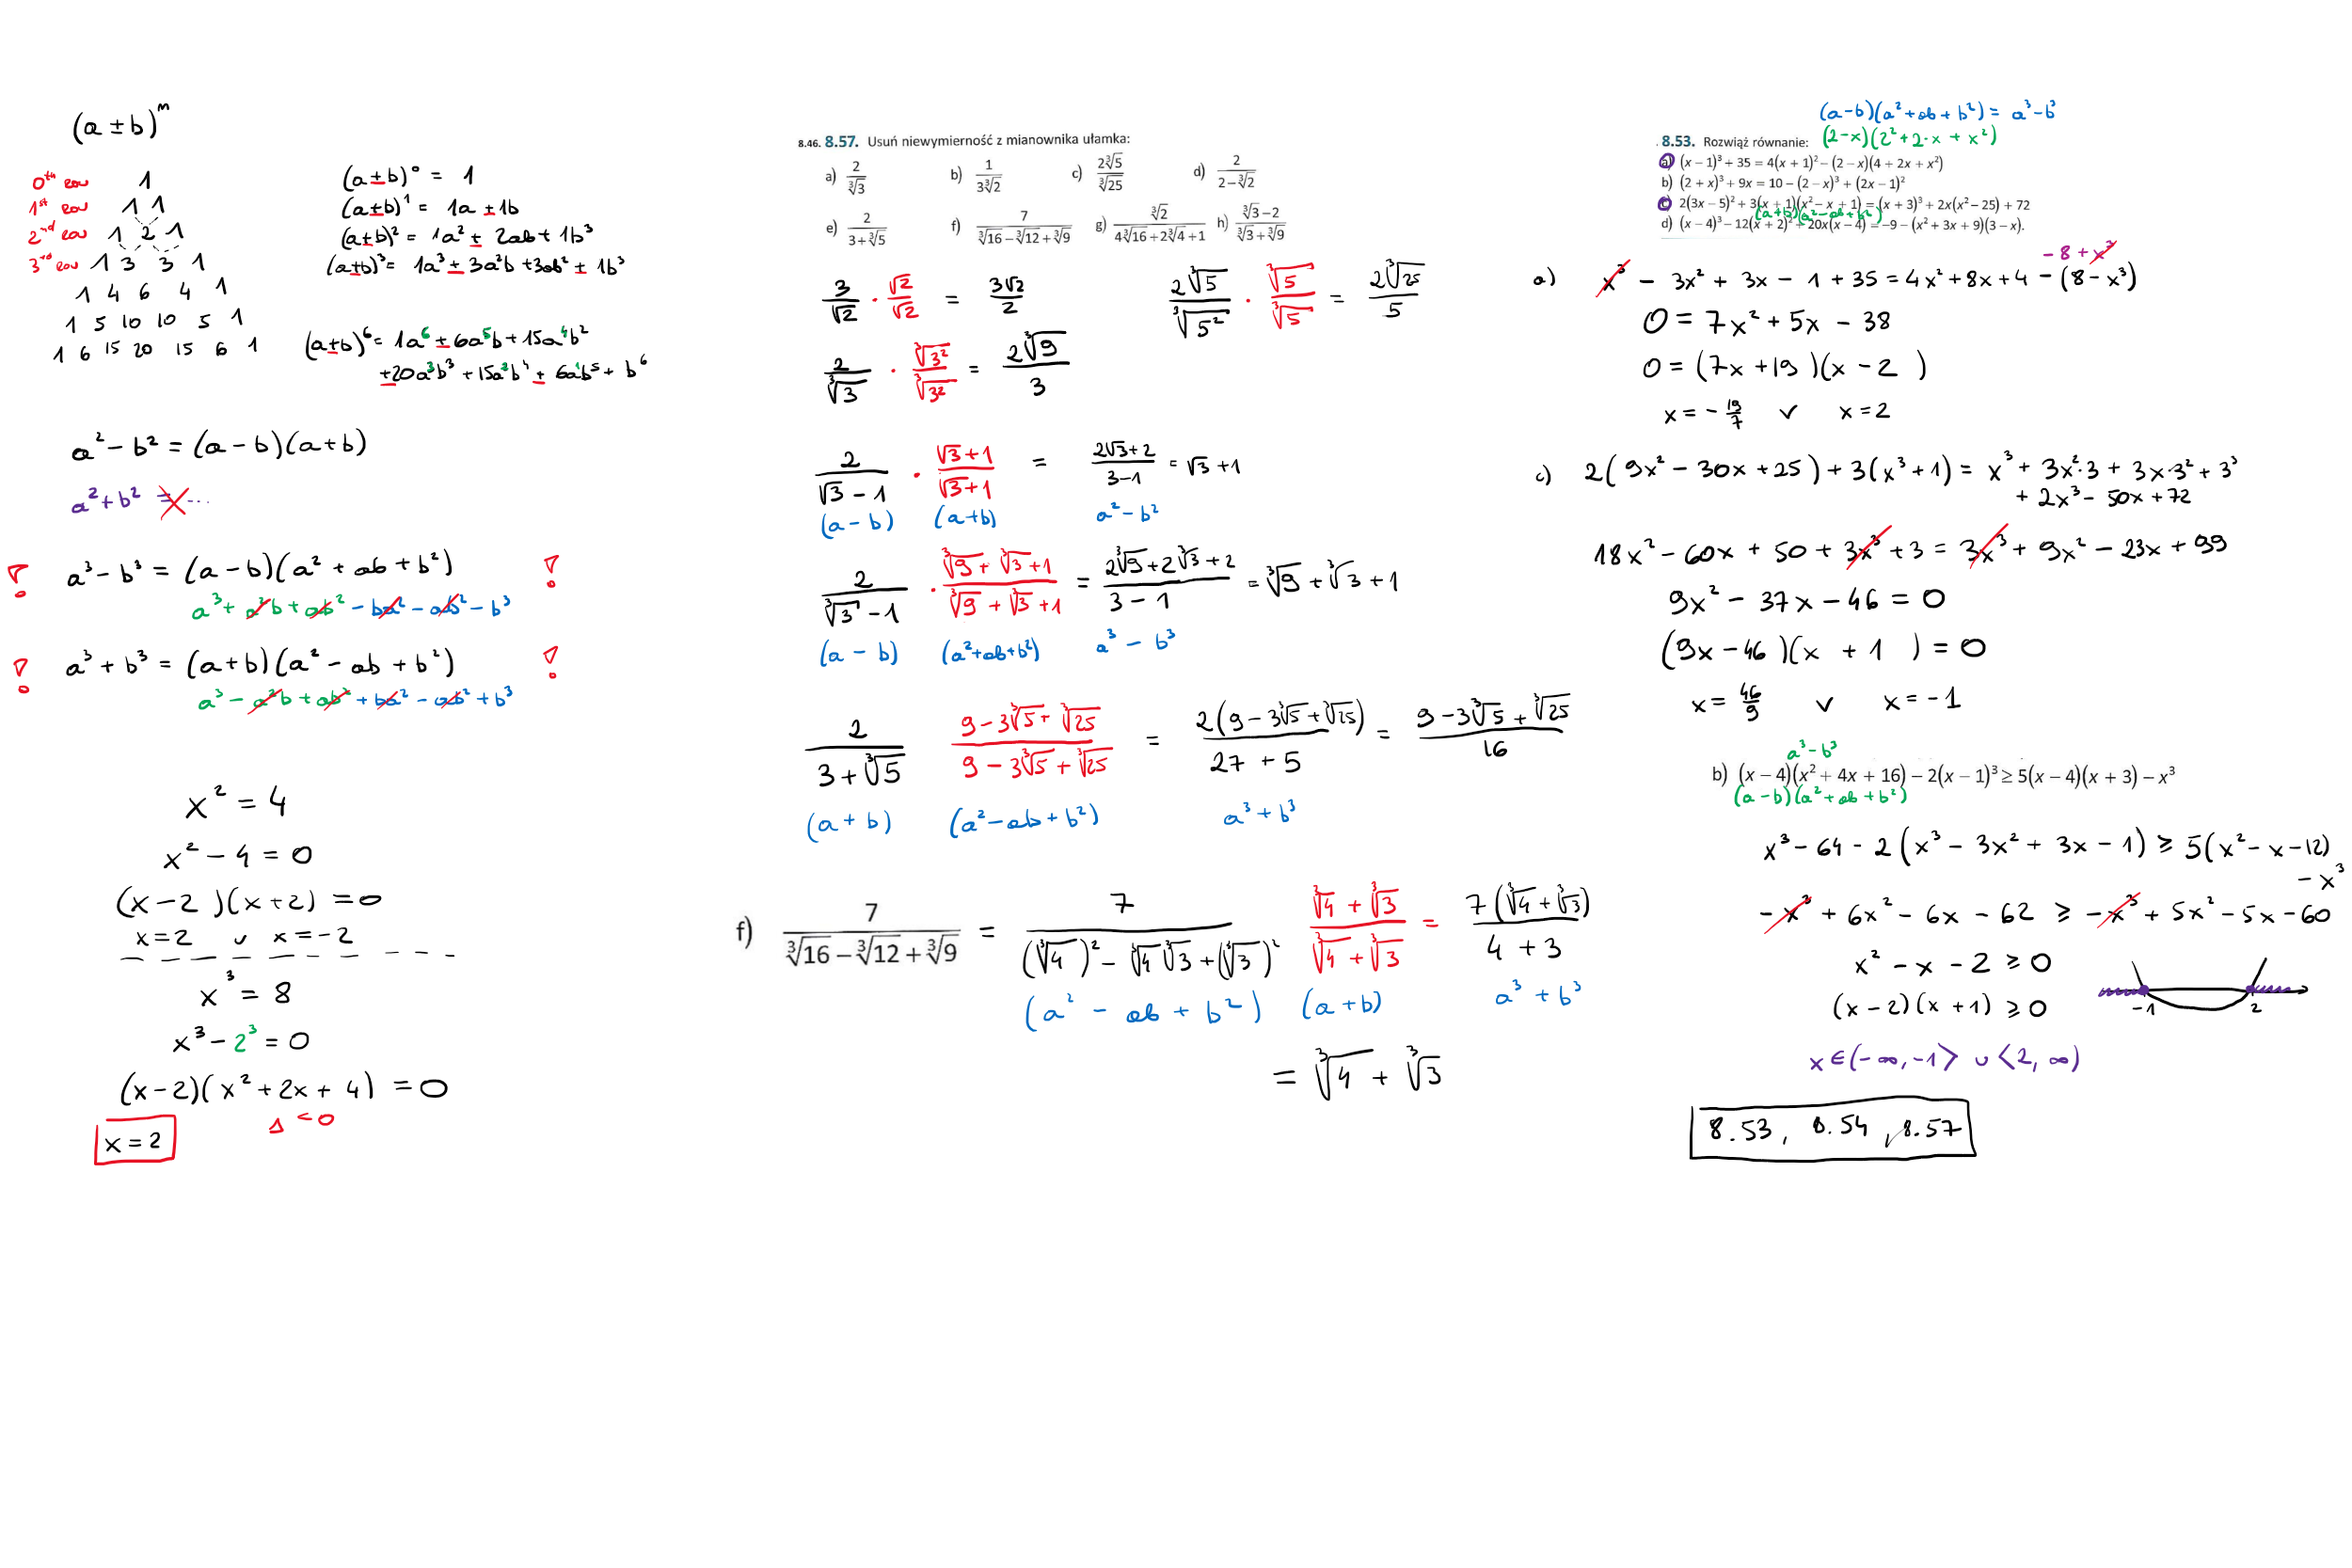 (a ± b)ⁿ
0th row 1
1st row 1 1
2nd row 1 2 1
3rd row 1 3 3 1
1 4 6 4 1
1 5 10 10 5 1
1 6 15 20 15 6 1
(a±b)⁰ = 1
(a±b)¹ = 1a ± 1b
(a±b)² = 1a² ± 2ab + 1b³
(a±b)³ = 1a³ ± 3a²b + 3ab² ± 1b³
(a±b)⁶ = 1a⁶ ± 6a⁵b + 15a⁴b²
±20a³b³ + 15a²b⁴ ± 6a¹b⁵ + b⁶
a² − b² = (a − b)(a + b)
a² + b² = ...
! a³ − b³ = (a − b)(a² + ab + b²) !
a³ + a²b + ab² − ba² − ab² − b³
! a³ + b³ = (a + b)(a² − ab + b²) !
a³ − a²b + ab² + ba² − ab² + b³
x² = 4
x² − 4 = 0
(x − 2)(x + 2) = 0
x = 2 ∨ x = −2
x³ = 8
x³ − 2³ = 0
(x − 2)(x² + 2x + 4) = 0
Δ < 0
x = 2
8.46. 8.57. Usuń niewymierność z mianownika ułamka:
a) 2/∛3 b) 1/(3∛2) c) 2∛5/∛25 d) 2/(2−∛2)
e) 2/(3+∛5) f) 7/(∛16−∛12+∛9) g) ∛2/(4∛16+2∛4+1) h) (∛3−2)/(∛3+∛9)
3/√2 · √2/√2 = 3√2/2
2∛5/∛5² · ∛5/∛5 = 2∛25/5
2/∛3 · ∛3²/∛3² = 2∛9/3
2/(√3 − 1) · (√3 + 1)/(√3 + 1) = (2√3 + 2)/(3 − 1) = √3 + 1
(a − b) (a + b) a² − b²
2/(∛3 − 1) · (∛9 + ∛3 + 1)/(∛9 + ∛3 + 1) = (2∛9 + 2∛3 + 2)/(3 − 1) = ∛9 + ∛3 + 1
(a − b) (a² + ab + b²) a³ − b³
2/(3 + ∛5) (9 − 3∛5 + ∛25)/(9 − 3∛5 + ∛25) = 2(9 − 3∛5 + ∛25)/(27 + 5) = (9 − 3∛5 + ∛25)/16
(a + b) (a² − ab + b²) a³ + b³
f) 7/(∛16 − ∛12 + ∛9) = 7/((∛4)² − ∛4 ∛3 + (∛3)²) (∛4 + ∛3)/(∛4 + ∛3) = 7(∛4 + ∛3)/(4 + 3)
(a² − ab + b²) (a + b) a³ + b³
= ∛4 + ∛3
(a−b)(a² + ab + b²) = a³ − b³
8.53. Rozwiąż równanie: (2−x)(2² + 2·x + x²)
a) (x − 1)³ + 35 = 4(x + 1)² − (2 − x)(4 + 2x + x²)
b) (2 + x)³ + 9x = 10 − (2 − x)³ + (2x − 1)²
c) 2(3x − 5)² + 3(x + 1)(x² − x + 1) = (x + 3)³ + 2x(x² − 25) + 72
(a+b)(a² − ab + b²)
d) (x − 4)³ − 12(x + 2)² + 20x(x − 4) = −9 − (x² + 3x + 9)(3 − x).
− 8 + x³
a) x³ − 3x² + 3x − 1 + 35 = 4x² + 8x + 4 − (8 − x³)
0 = 7x² + 5x − 38
0 = (7x + 19)(x − 2)
x = −19/7 ∨ x = 2
c) 2(9x² − 30x + 25) + 3(x³ + 1) = x³ + 3x²·3 + 3x·3² + 3³
+ 2x³ − 50x + 72
18x² − 60x + 50 + 3x³ + 3 = 3x³ + 9x² − 23x + 99
9x² − 37x − 46 = 0
(9x − 46)(x + 1) = 0
x = 46/9 ∨ x = −1
a³ − b³
b) (x − 4)(x² + 4x + 16) − 2(x − 1)³ ≥ 5(x − 4)(x + 3) − x³
(a − b)(a² + ab + b²)
x³ − 64 − 2(x³ − 3x² + 3x − 1) ≥ 5(x² − x − 12)
− x³
− x³ + 6x² − 6x − 62 ≥ − x³ + 5x² − 5x − 60
x² − x − 2 ≥ 0
(x − 2)(x + 1) ≥ 0
−1 2
x ∈ (−∞, −1> ∪ <2, ∞)
8.53, 8.54, 8.57